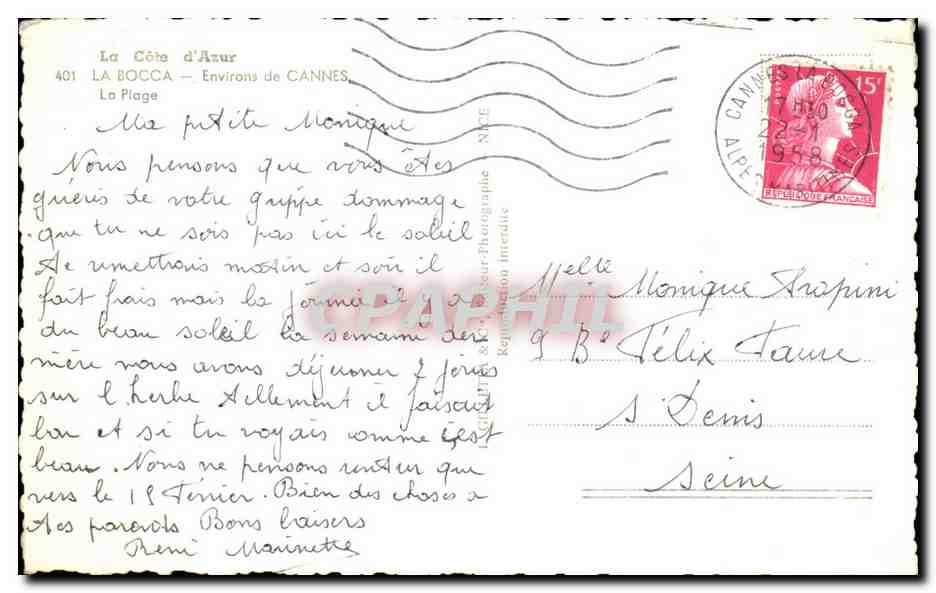 La Côte d'Azur
401 LA BOCCA — Environs de CANNES
La Plage
Ma petite Monique
Nous pensons que vous êtes
guéris de votre grippe dommage
que tu ne sois pas ici le soleil
te remettrais matin et soir il
fait frais mais la journée il y a
du beau soleil la semaine der-
nière nous avons déjeuner 2 fois
sur l'herbe tellement il faisait
bon et si tu voyais comme c'est
beau. Nous ne pensons rentrer que
vers le 15 Février. Bien des choses a
tes parents Bons baisers
René Marinette
Photographe NICE
Reproduction interdite
CPAPHIL
CANNES LA BOCCA
17H30
22-1
1958
ALPES MARITIMES
15F
POSTES
REPUBLIQUE FRANCAISE
Melle Monique Arapini
9 Bd Félix Faure
St Denis
Seine